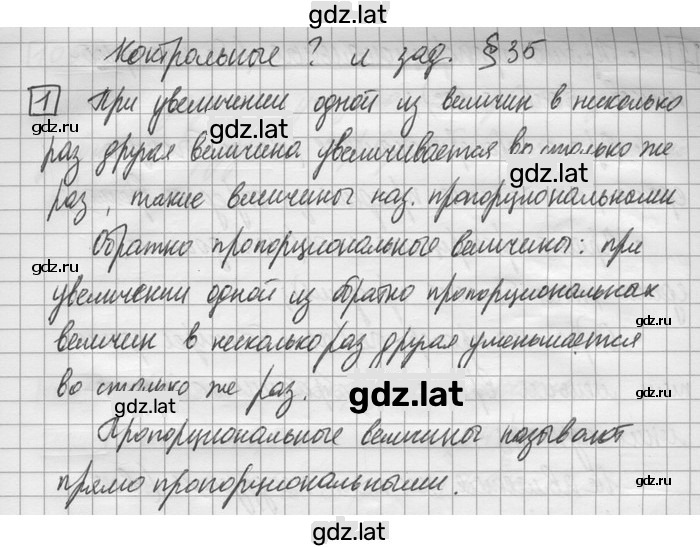 gdz.lat
Контрольные ? и зад. § 35
gdz.lat
1 При увеличении одной из величин в несколько
gdz.lat
раз другая величина увеличивается во столько же
gdz.lat
раз, такие величины наз. пропорциональными
Обратно пропорциональные величины: при
gdz.lat
gdz.lat
увеличении одной из обратно пропорциональных
величин в несколько раз другая уменьшается
во столько же раз.
gdz.lat
gdz.lat
gdz.lat
Пропорциональные величины называют
прямо пропорциональными.
gdz.lat
gdz.lat
gdz.lat